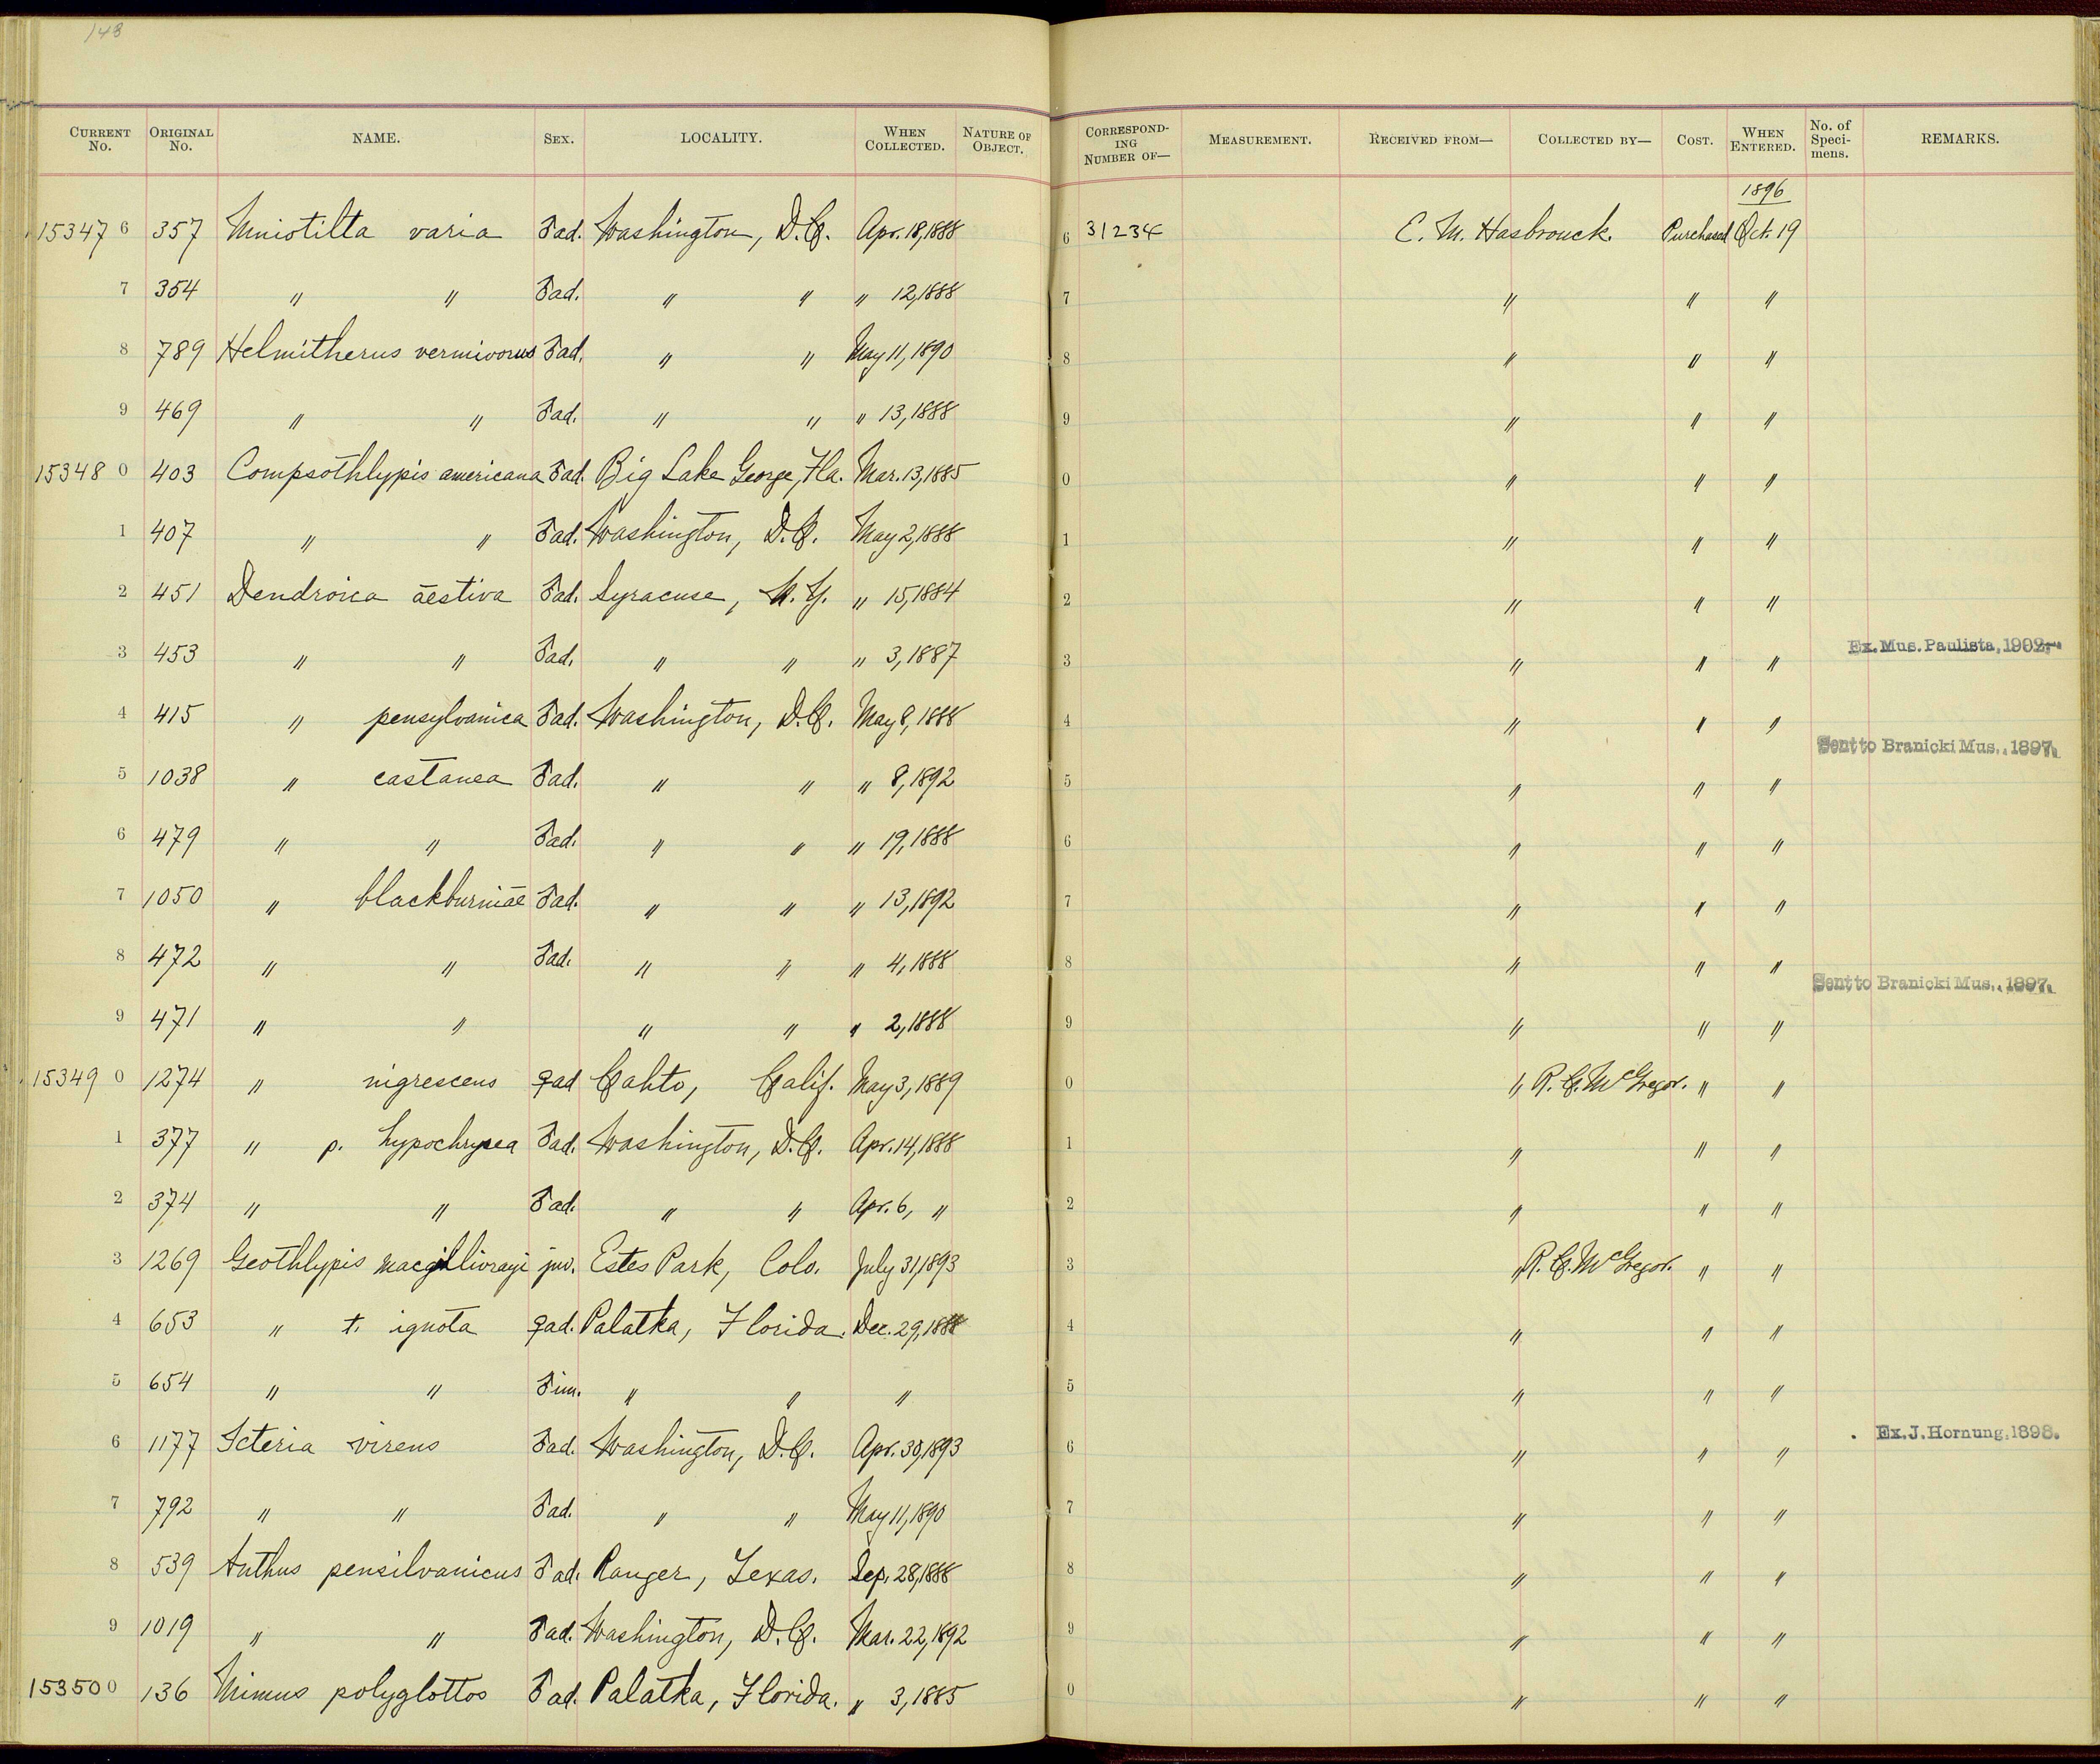 148
CURRENT No. ORIGINAL No. NAME. SEX. LOCALITY. WHEN COLLECTED. NATURE OF OBJECT. CORRESPONDING NUMBER OF— MEASUREMENT. RECEIVED FROM— COLLECTED BY— COST. WHEN ENTERED. No. of Specimens. REMARKS.
1896
15347 6 357 Mniotilta varia ♂ad. Washington, D.C. Apr. 18, 1888 6 31234 E. M. Hasbrouck. Purchased Oct. 19
7 354 " " ♂ad. " " " 12, 1888 7 " " "
8 789 Helmitherus vermivorus ♂ad. " " May 11, 1890 8 " " "
9 469 " " ♂ad. " " " 13, 1888 9 " " "
15348 0 403 Compsothlypis americana ♂ad. Big Lake George, Fla. Mar. 13, 1885 0 " " "
1 407 " " ♂ad. Washington, D.C. May 2, 1888 1 " " "
2 451 Dendroica aestiva ♂ad. Syracuse, N.Y. " 15, 1884 2 " " "
3 453 " " ♂ad. " " " 3, 1887 3 " " " Ex. Mus. Paulista, 1902.
4 415 " pensylvanica ♂ad. Washington, D.C. May 8, 1888 4 " " "
5 1038 " castanea ♂ad. " " " 8, 1892 5 " " " Sent to Branicki Mus., 1897.
6 479 " " ♂ad. " " " 19, 1888 6 " " "
7 1050 " blackburniae ♂ad. " " " 13, 1892 7 " " "
8 472 " " ♂ad. " " " 4, 1888 8 " " " Sent to Branicki Mus., 1897.
9 471 " " " " " 2, 1888 9 " " "
15349 0 1274 " nigrescens ♀ad Cahto, Calif. May 3, 1889 0 " R. C. McGregor. " "
1 377 " p. hypochrysea ♂ad. Washington, D.C. Apr. 14, 1888 1 " " "
2 374 " " ♂ad. " " Apr. 6, " 2 " " "
3 1269 Geothlypis macgillivrayi juv. Estes Park, Colo. July 31, 1893 3 " R. C. McGregor. " "
4 653 " t. ignota ♀ad. Palatka, Florida. Dec. 29, 1888 4 " " "
5 654 " " ♂im. " " " 5 " " "
6 1177 Icteria virens ♂ad. Washington, D.C. Apr. 30, 1893 6 " " " Ex. J. Hornung, 1898.
7 792 " " ♂ad. " " May 11, 1890 7 " " "
8 539 Anthus pensilvanicus ♂ad. Ranger, Texas. Sep. 28, 1888 8 " " "
9 1019 " " ♂ad. Washington, D.C. Mar. 22, 1892 9 " " "
15350 0 136 Mimus polyglottos ♂ad. Palatka, Florida. " 3, 1885 0 " " "